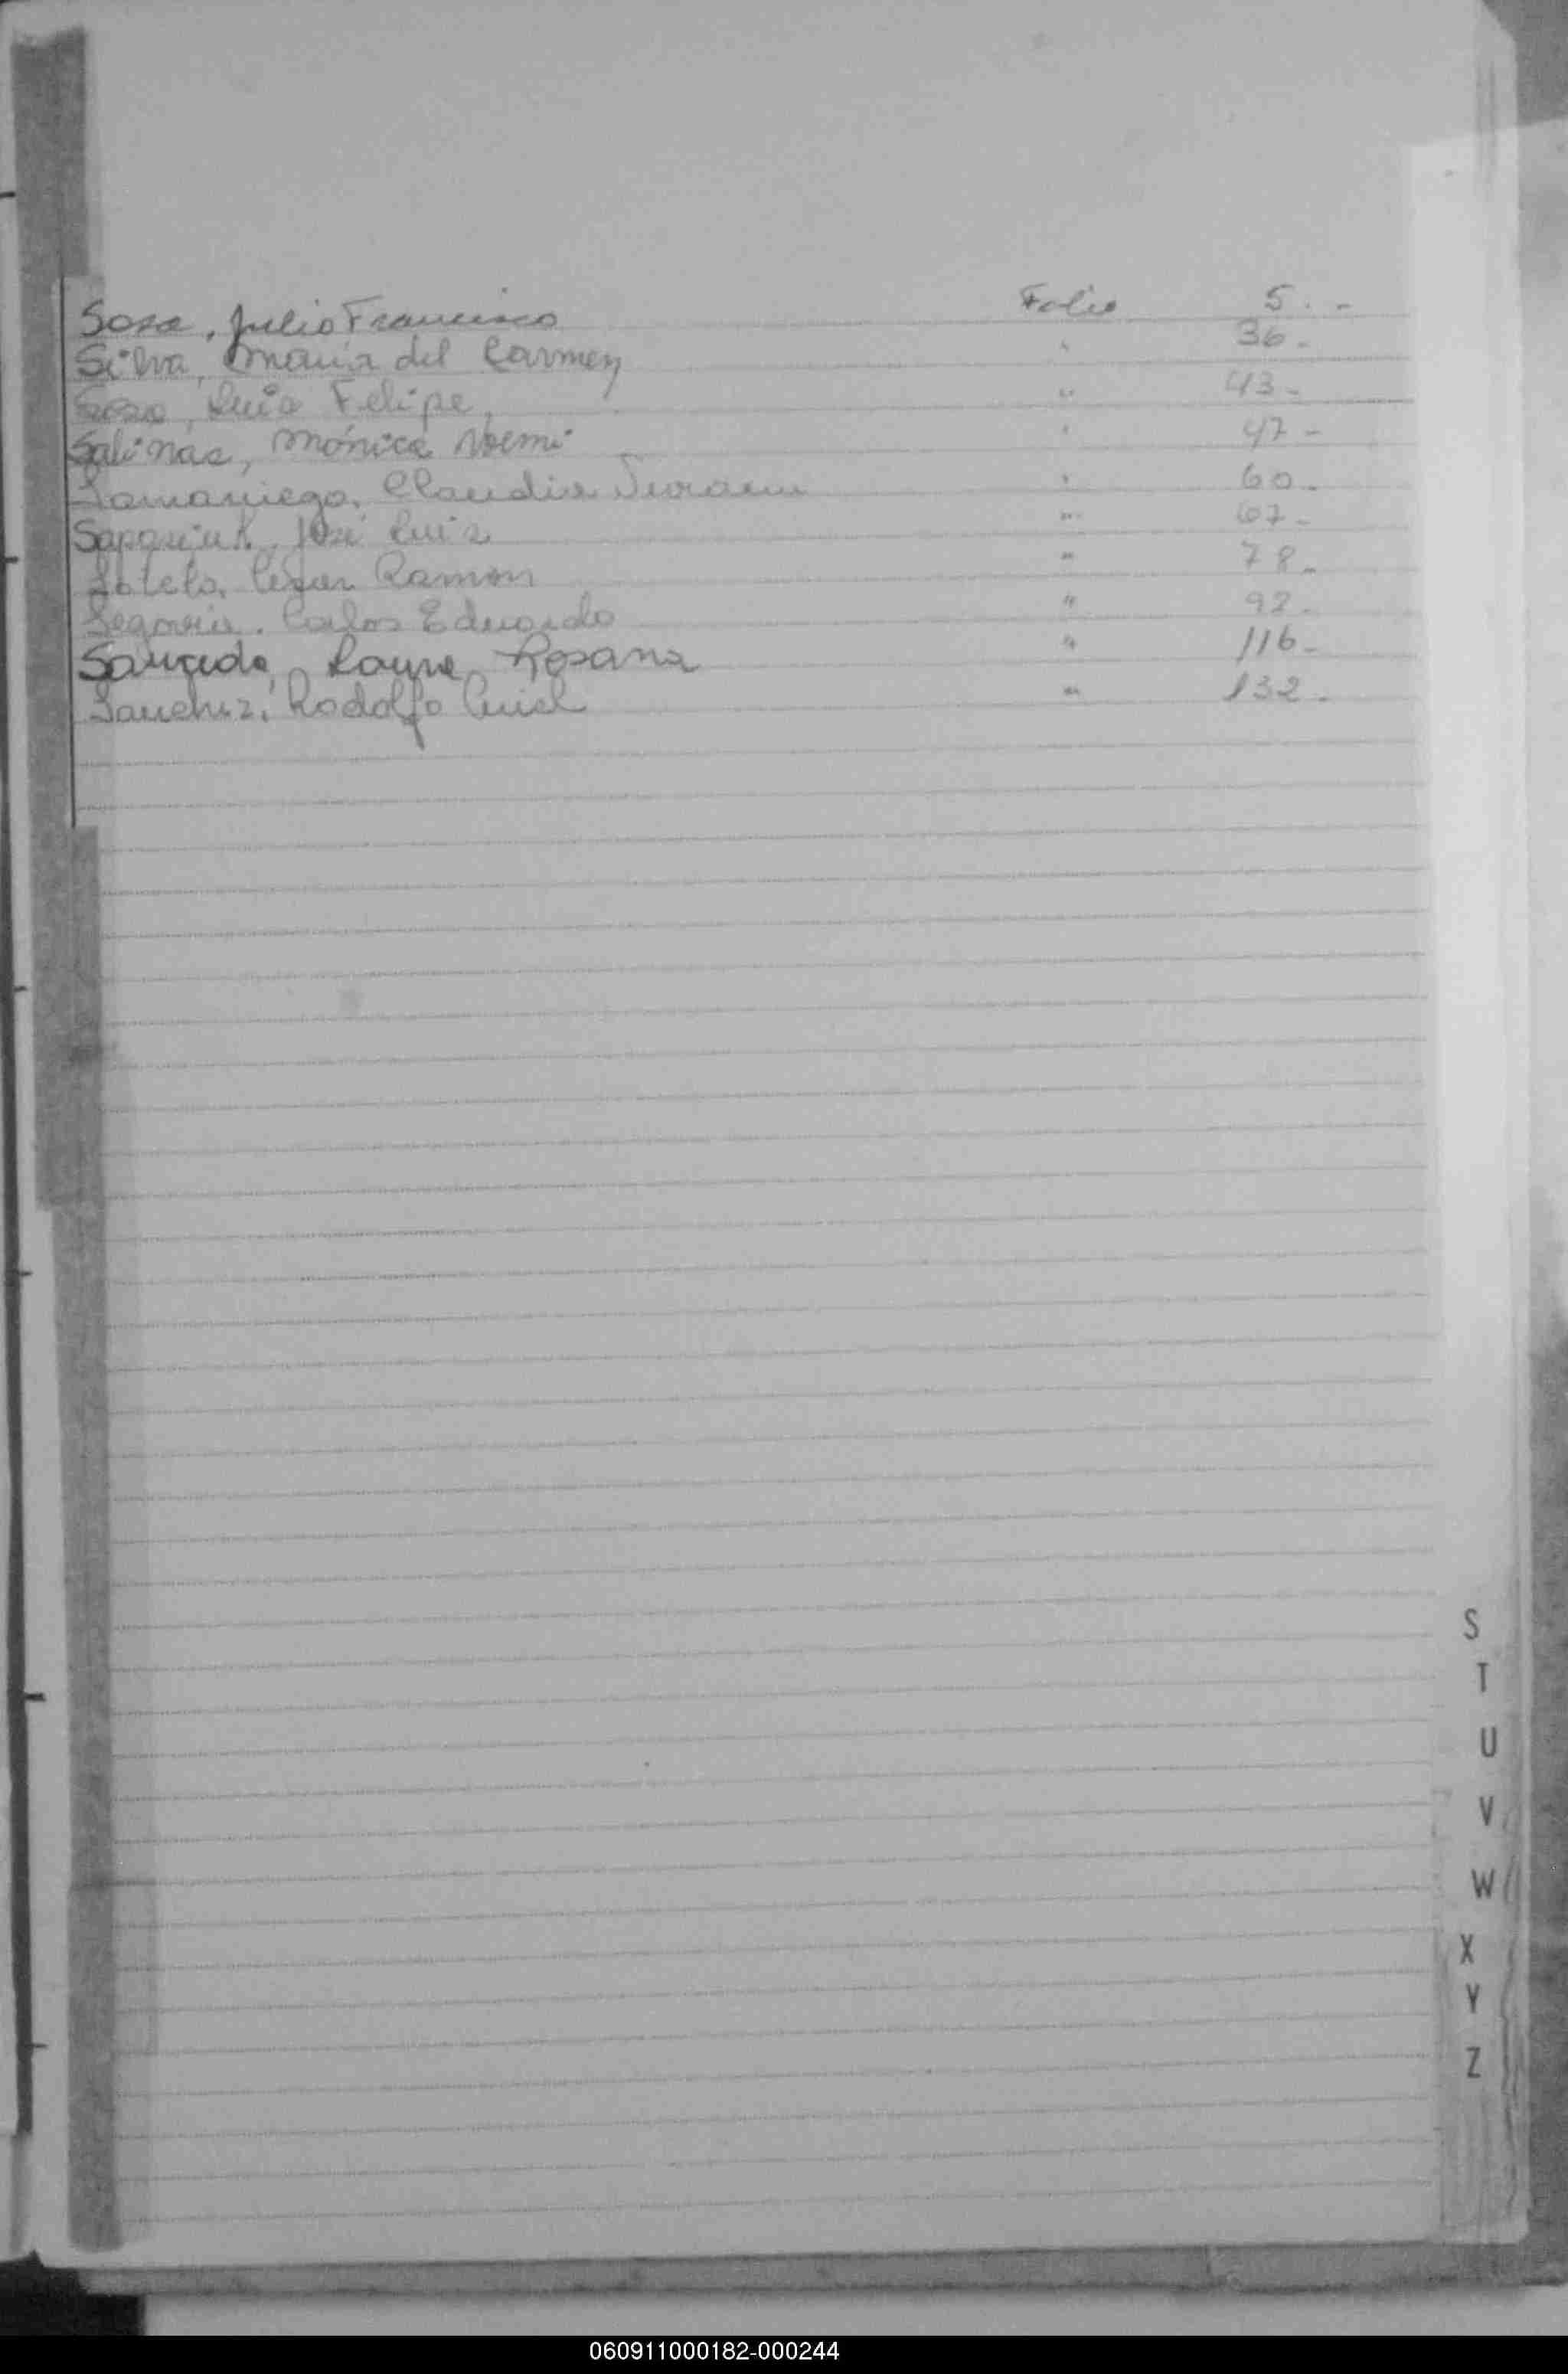 Sosa, Julio Francisco Folio 5.-
Silva, María del Carmen " 36-
Sosa, Luis Felipe, " 43-
Salinas, Mónica Noemi " 47-
Samaniego, Claudia " 60-
José Luis " 67-
Sotelo, César Ramón " 78-
Segovia, Carlos Eduardo " 92-
Saucedo, Laura Rosana " 116-
Sanchez, Rodolfo " 132-
S
T
U
V
W
X
Y
Z
060911000182-000244